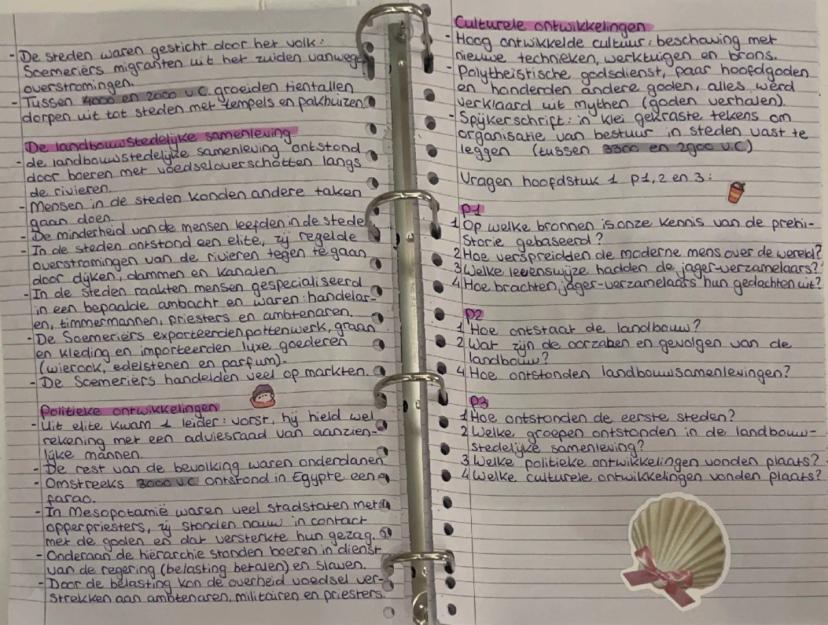 - De steden waren gesticht door het volk:
Soemeriërs migranten uit het zuiden vanwege
overstromingen.
- Tussen 4000 en 2000 v.C. groeiden tientallen
dorpen uit tot steden met tempels en pakhuizen.
De landbouwstedelijke samenleving
- de landbouwstedelijke samenleving ontstond
door boeren met voedseloverschotten langs
de rivieren.
- Mensen in de steden konden andere taken
gaan doen.
- De minderheid van de mensen leefden in de stede
- In de steden ontstond een elite, zij regelde
overstromingen van de rivieren tegen te gaan
door dijken, dammen en kanalen.
- In de steden raakten mensen gespecialiseerd
in een bepaalde ambacht en waren: handelar-
en, timmermannen, priesters en ambtenaren.
- De Soemeriërs exporteerden pottenwerk, graan
en kleding en importeerden luxe goederen
(wierook, edelstenen en parfum).
- De Soemeriërs handelden veel op markten.
Politieke ontwikkelingen
- Uit elite kwam 1 leider: vorst, hij hield wel
rekening met een adviesraad van aanzien-
lijke mannen.
- De rest van de bevolking waren onderdanen
- Omstreeks 3000 v.C. ontstond in Egypte een
farao.
- In Mesopotamië waren veel stadstaten met
opperpriesters, zij stonden nauw in contact
met de goden en dat versterkte hun gezag.
- Onderaan de hiërarchie stonden boeren in dienst
van de regering (belasting betalen) en slaven.
- Door de belasting kon de overheid voedsel ver-
strekken aan ambtenaren, militairen en priesters.
Culturele ontwikkelingen
- Hoog ontwikkelde cultuur: beschaving met
nieuwe technieken, werktuigen en brons.
- Polytheïstische godsdienst, paar hoofdgoden
en honderden andere goden, alles werd
verklaard uit mythen (goden verhalen).
- Spijkerschrift: in klei gekraste tekens om
organisatie van bestuur in steden vast te
leggen (tussen 3300 en 2900 v.C)
Vragen hoofdstuk 1 p1, 2 en 3:
P1
1 Op welke bronnen is onze kennis van de prehi-
storie gebaseerd?
2 Hoe verspreidden de moderne mens over de wereld?
3 Welke levenswijze hadden de jager-verzamelaars?
4 Hoe brachten jager-verzamelaars hun gedachten uit?
P2
1 Hoe ontstaat de landbouw?
2 Wat zijn de oorzaken en gevolgen van de
landbouw?
4 Hoe ontstonden landbouwsamenlevingen?
P3
1 Hoe ontstonden de eerste steden?
2 Welke groepen ontstonden in de landbouw-
stedelijke samenleving?
3 Welke politieke ontwikkelingen vonden plaats?
4 Welke culturele ontwikkelingen vonden plaats?